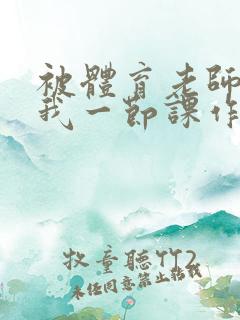 被體育老師
我一節課作
牧童聽竹2
未任同意禁止轉載